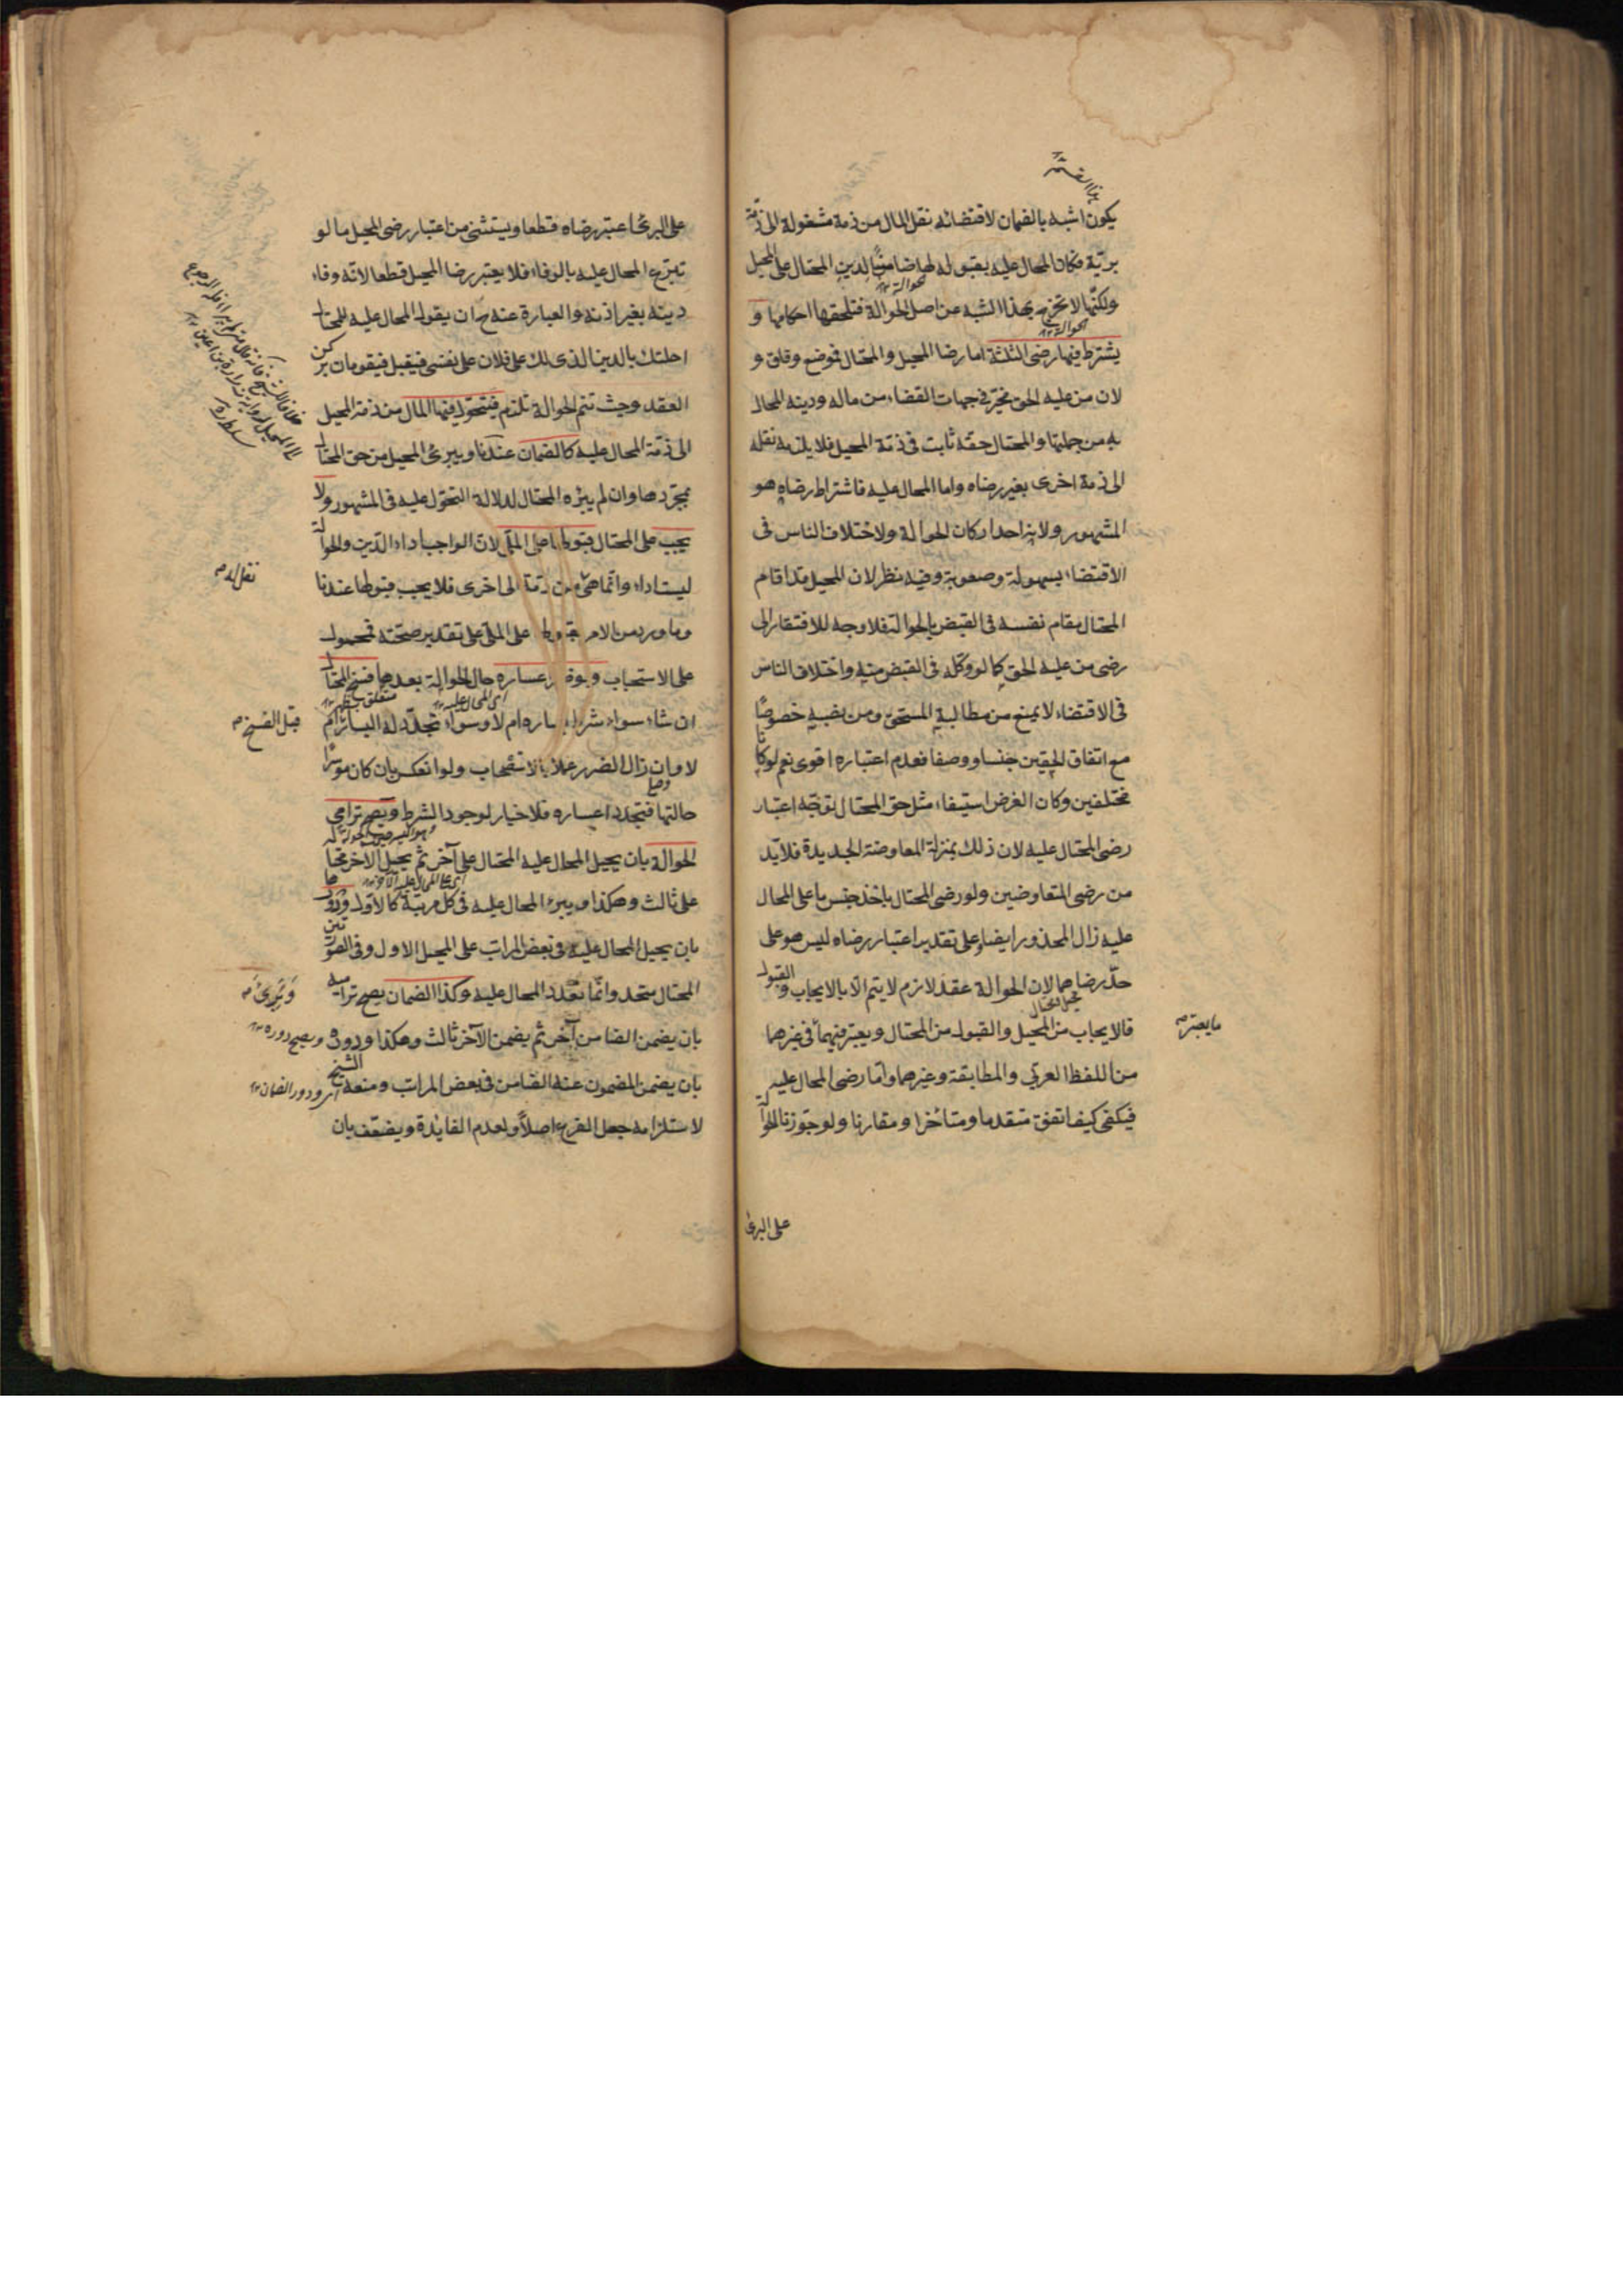 يكون اشبه بالضمان لاقتضائه نقل المال من ذمة مشغولة الى ذمة
بريّة فكان المحال عليه بقبوله لها ضامنا لدين المحتال على المحيل
ولكنّها لا تخرج بهذا الشبه عن اصل الحوالة فتلحقها احكامها و
يشترط فيها رضى الثلثة اما رضا المحيل والمحتال فموضع وفاق و
لان من عليه الحق مخيّر في جهات القضاء من ماله ودينه المحال
به من جملتها والمحتال حقه ثابت في ذمة المحيل فلا يلزمه نقله
الى ذمة اخرى بغير رضاه واما المحال عليه فاشتراط رضاه هو
المشهور ولانه احد اركان الحوالة ولاختلاف الناس في
الاقتضاء بسهولة وصعوبة وفيه نظر لان المحيل قد اقام
المحتال مقام نفسه في القبض بالحوالة فلا وجه للافتقار الى
رضى من عليه الحق كما لو وكّله في القبض منه واختلاف الناس
في الاقتضاء لا يمنع من مطالبة المستحق ومن نصبه خصوصًا
مع اتفاق الحقين جنسا ووصفا فعدم اعتباره اقوى نعم لو كانا
مختلفين وكان الغرض استيفاء مثل حق المحتال توجّه اعتبار
رضى المحتال عليه لان ذلك بمنزلة المعاوضة الجديدة فلا بد
من رضى المتعاوضين ولو رضى المحتال باخذ جنس ما على المحال
عليه زال المحذور ايضا وعلى تقدير اعتبار رضاه ليس هو على
حدّ رضاهما لان الحوالة عقد لازم لا يتم الا بالايجاب والقبول
فالايجاب من المحيل والقبول من المحتال ويعتبر فيهما في غيرهما
ما يعتبر
من اللفظ العربي والمطابقة وغيرهما واما رضى المحال عليه
فيكفي كيف اتفق متقدما ومتاخرا ومقارنا ولو جوّزنا الحوالة
على البرئ
على البرئ اعتبر رضاه قطعا ويستثنى من اعتبار رضى المحيل ما لو
تبرّع المحال عليه بالوفاء فلا يعتبر رضا المحيل قطعا لانه وفاء
دينه بغير اذنه والعبارة عنه ح ان يقول المحال عليه للمحتال
احلتك بالدين الذي لك على فلان على نفسي فيقبل فيقومان بركن
العقد وحيث تتم الحوالة تلزم فيتحوّل فيها المال من ذمة المحيل
الى ذمة المحال عليه كالضمان عندنا ويبرئ المحيل من حق المحتال
بمجرّدها وان لم يبرئه المحتال لدلالة التحوّل عليه في المشهور ولا
يجب على المحتال قبولها على الملي لان الواجب اداء الدّين والحوالة
ليست اداء وانما هي من ذمة الى اخرى فلا يجب قبولها عندنا
نقل له
وما ورد من الامر بقبولها على الملي على تقدير صحّته محمول
على الاستحباب ولو ظهر اعساره حال الحوالة بعدها فسخ المحتال
اى المحال عليه
متعلق بظهر
ان شاء سواء شرط يساره ام لا وسواء تجدّد له اليسار ام
قبل الفسخ
لا وان زال الضرر عملا بالاستصحاب ولو انعكس بان كان موسرا
حالتها فتجدد اعساره فلا خيار لوجود الشرط ويصح ترامي
الحوالة بان يحيل المحال عليه المحتال على آخر ثم يحيل الاخر محتاله
على ثالث وهكذا ويبرء المحال عليه في كل مرتبة كالاول ودورها
بان يحيل المحال عليه في بعض المراتب على المحيل الاول وفي الصورتين
المحتال متحد وانما تعدد المحال عليه وكذا الضمان يصح تراميه
بان يضمن الضامن آخر ثم يضمن الآخر ثالث وهكذا ودوره
ويصح دوره
بان يضمن المضمون عنه الضامن في بعض المراتب ومنعه الشيخ
اى دور الضمان
لاستلزامه جعل الفرع اصلا ولعدم الفايدة ويضعّف بان